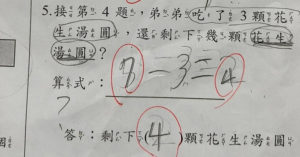 5.接第4題，弟弟吃了3顆花
生湯圓，還剩下幾顆花生
湯圓？
算式：7－3＝4
答：剩下(4)顆花生湯圓